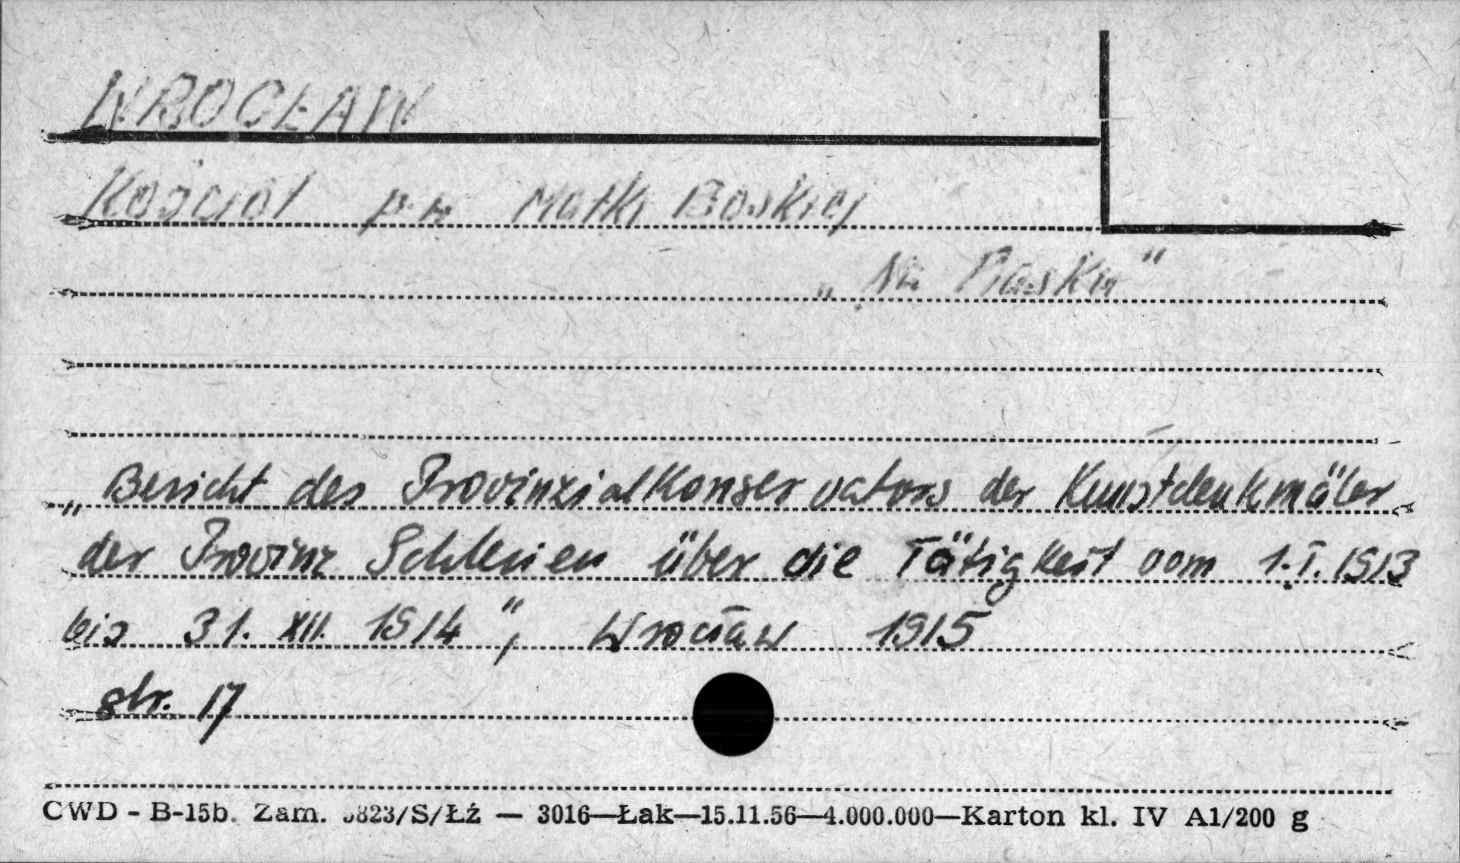 WROCŁAW
Kościół p.w. Matki Boskiej
„Na Piasku"
„Bericht des Provinzialkonservators der Kunstdenkmäler
der Provinz Schlesien über die Tätigkeit vom 1.I.1913
bis 31. XII. 1914", Wrocław 1915
str. 17
CWD - B-15b. Zam. 823/S/Łź — 3016—Łak—15.11.56—4.000.000—Karton kl. IV A1/200 g